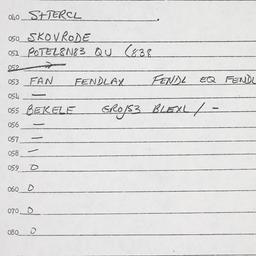 040 STTERCL .
050 SKOVRODE
051 POTEL8N83 QU (838
052
053 FAN FENDLAX FENDL EQ FENDL
054 —
055 BEKELE GRO/S3 BLEXL / -
056 —
057 —
058 —
059 0
060 0
070 0
080 0